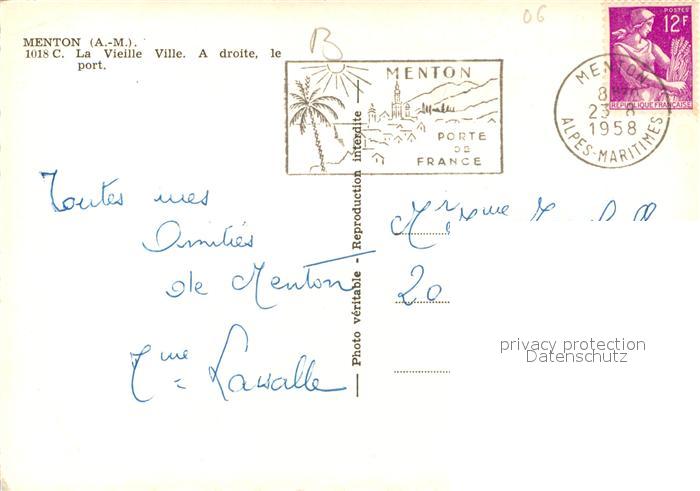 06
B
MENTON (A.-M.).
1018 C. La Vieille Ville. A droite, le
port.
MENTON
PORTE
DE
FRANCE
POSTES
12F
REPUBLIQUE FRANÇAISE
MENTON
23 8
1958
ALPES-MARITIMES
Toutes mes
Amitiés
de Menton
Mme Lassalle
Photo véritable - Reproduction interdite
Mr Mme
20
privacy protection
Datenschutz